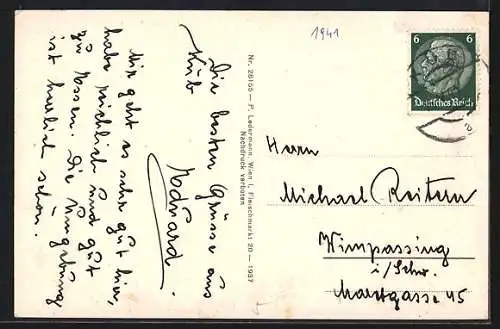 Die besten Grüsse aus
Küb
Eduard.
Mir geht es sehr gut hier,
habe reichlich und gut
zu Essen. Die Umgebung
ist herrlich schön.
Nr. 26155 — P. Ledermann, Wien I, Fleischmarkt 20 — 1937
Nachdruck verboten
1941
6 6
Deutsches Reich
Herrn
Michael Reiterer
Wimpassing
i/Schw.
Marktgasse 45